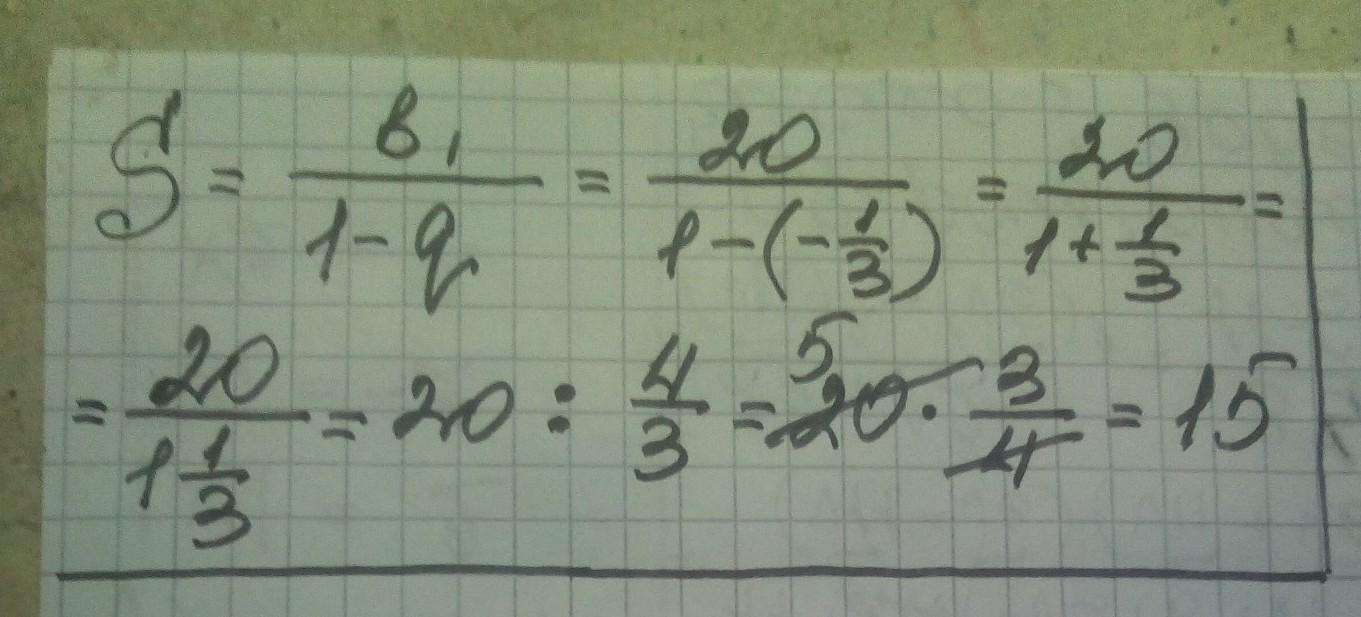 S = в₁/(1-q) = 20/(1-(-1/3)) = 20/(1+1/3) =
= 20/(1 1/3) = 20 : 4/3 = 5 20 · 3/4 = 15